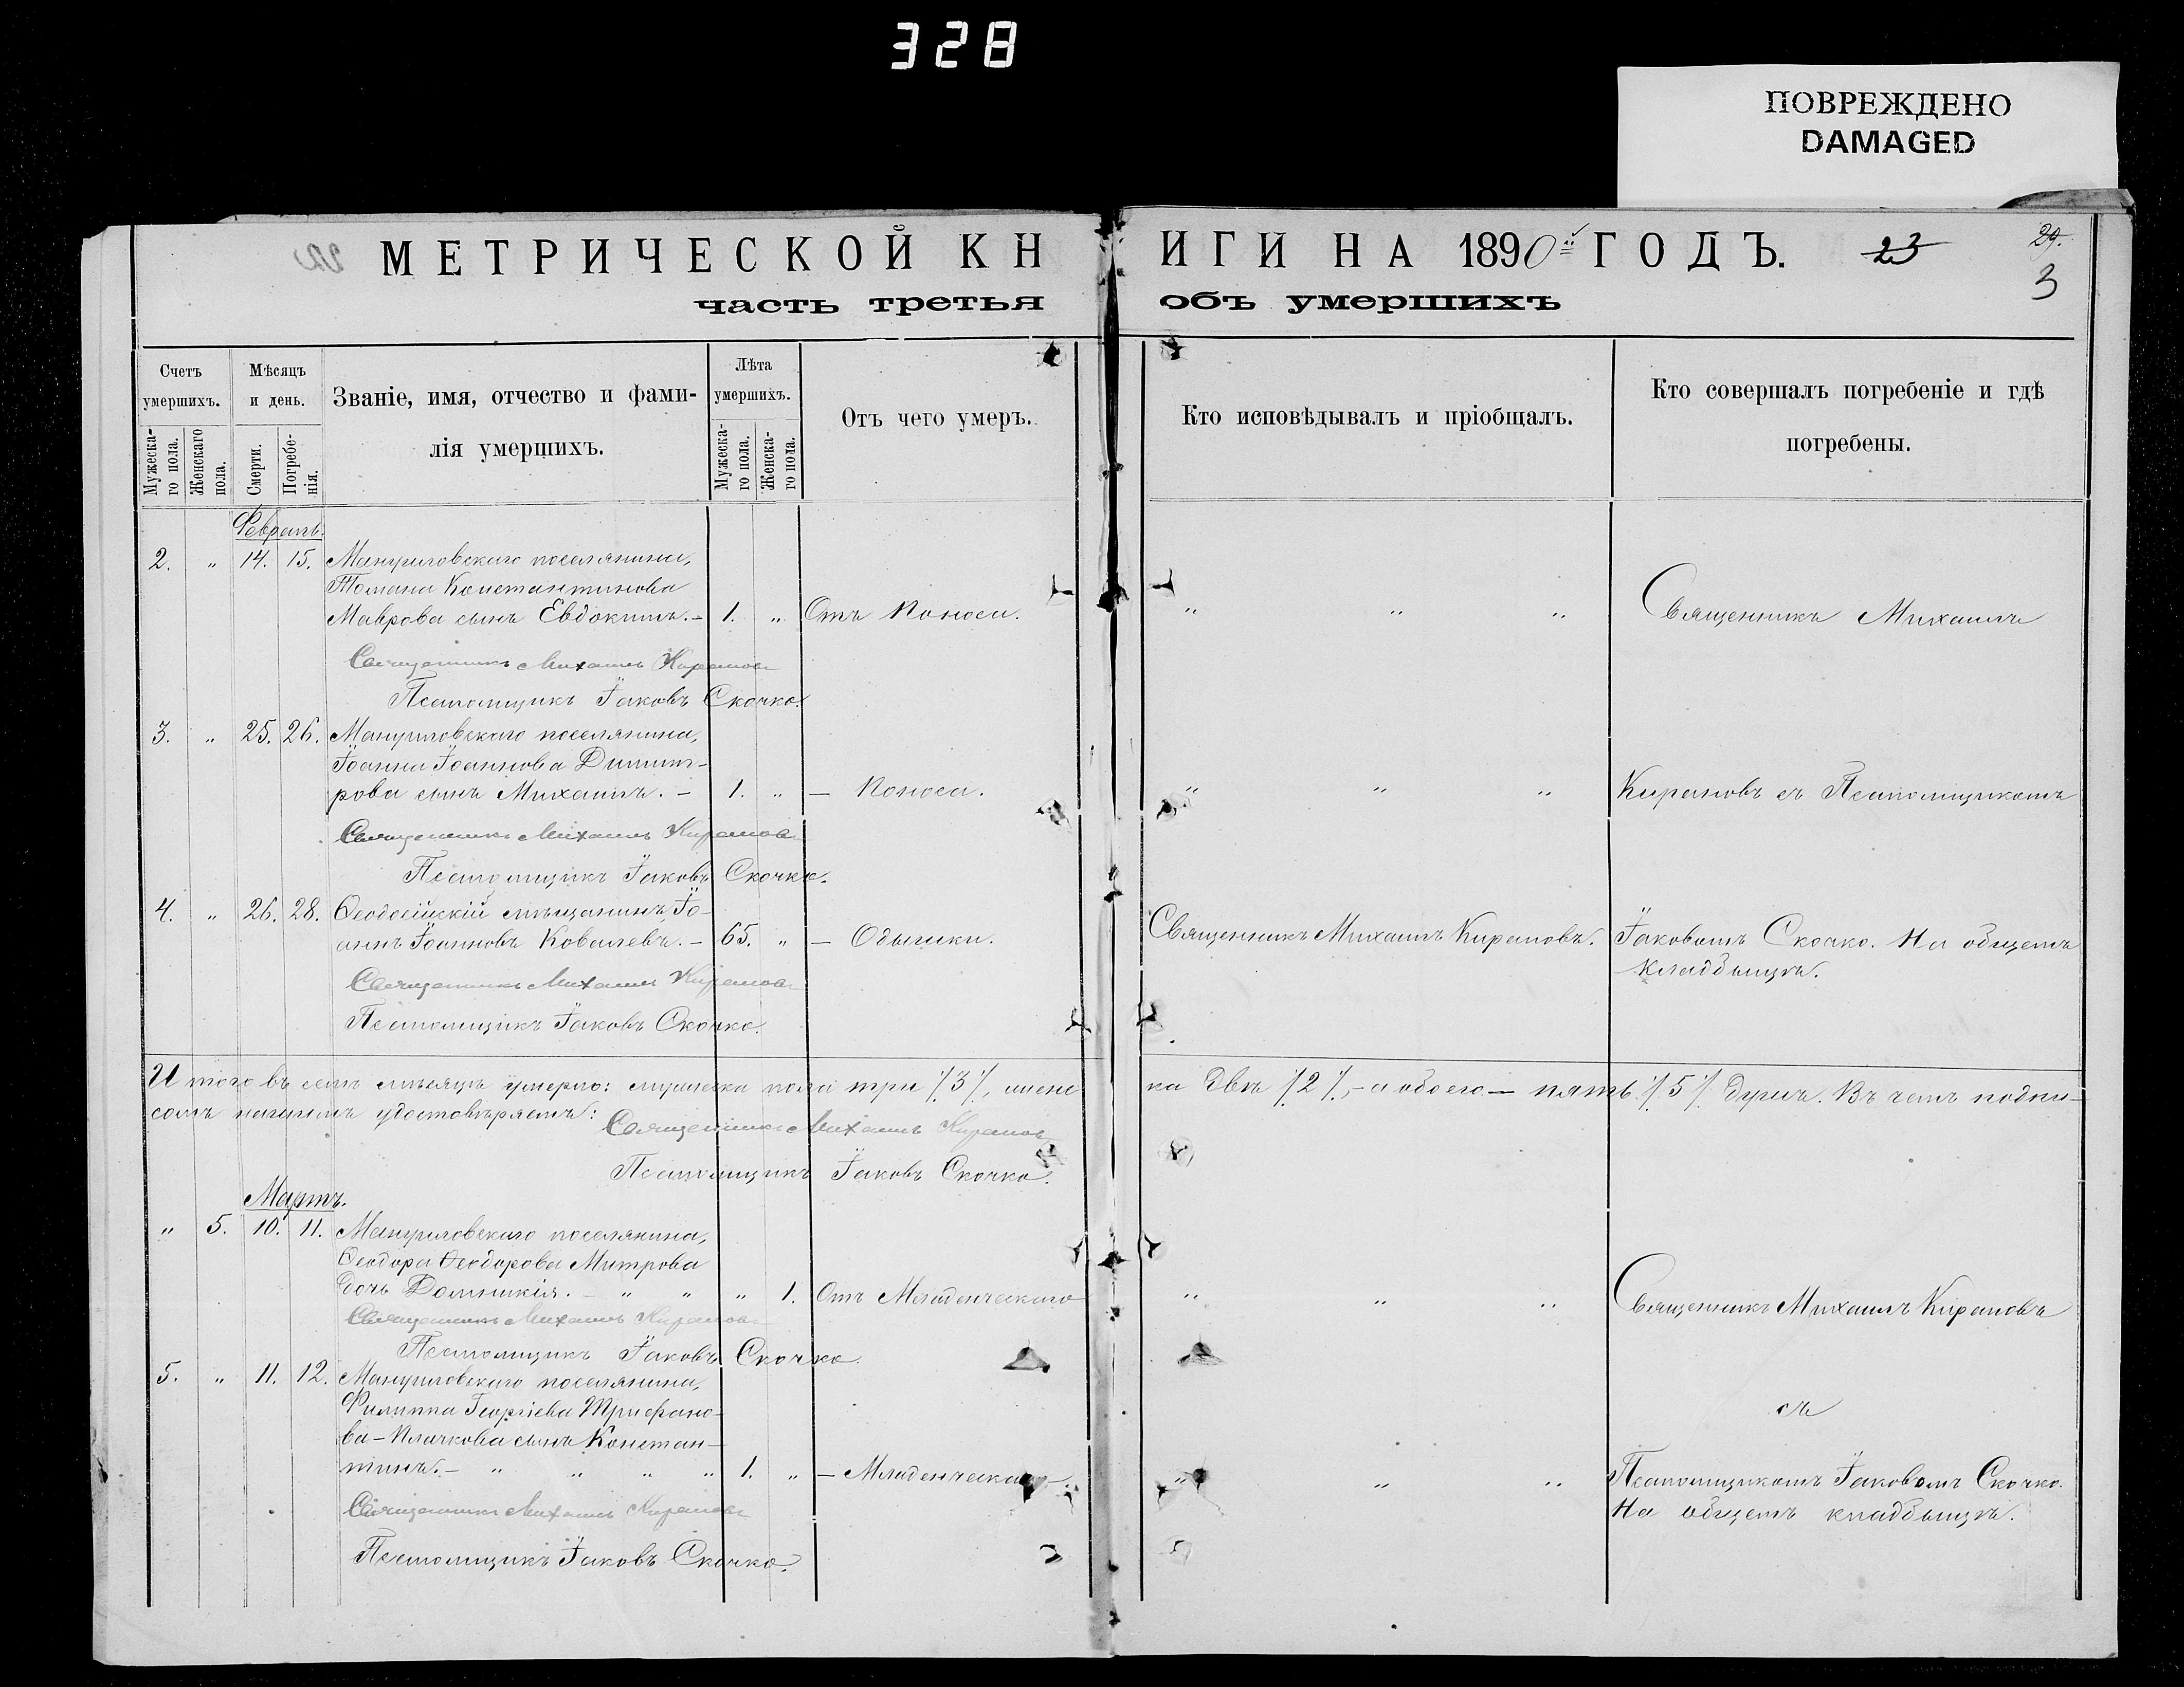 328
ПОВРЕЖДЕНО
DAMAGED
МЕТРИЧЕСКОЙ КНИГИ НА 1890й ГОДЪ. 23 29. 3
часть третья объ умершихъ
Счетъ умершихъ.
Мѣсяцъ и день.
Званіе, имя, отчество и фамилія умершихъ.
Лѣта умершихъ.
Отъ чего умеръ.
Кто исповѣдывалъ и пріобщалъ.
Кто совершалъ погребеніе и гдѣ
погребены.
Мужескаго пола.
Женскаго пола.
Смерти.
Погребенія.
Мужескаго пола.
Женскаго пола.
Февраль.
2. " 14. 15. поселянина,
Константинова
Маврова сынъ Евдокимъ. – 1. " Отъ Поноса. " " " Священникъ Михаилъ
Священникъ Михаилъ Кирановъ
Псаломщикъ Іаковъ Скочко.
3. " 25. 26. поселянина,
Іоанна Іоаннова Димит-
рова сынъ Михаилъ. – 1. " – Поноса. " " " Кирановъ съ Псаломщикомъ
Священникъ Михаилъ Кирановъ
Псаломщикъ Іаковъ Скочко.
4. " 26. 28. Ѳеодосійскій мѣщанинъ, Іо-
аннъ Іоанновъ Ковалевъ. – 65. " – Одышки. Священникъ Михаилъ Кирановъ. Іаковомъ Скочко. На общемъ
кладбищѣ.
Священникъ Михаилъ Кирановъ
Псаломщикъ Іаковъ Скочко.
Итого въ семъ мѣсяцѣ умерло: мужеска пола три /3/, женска двѣ /2/, – а обоего – пять /5/ душъ. Въ чемъ подпи-
сомъ нашимъ удостовѣряемъ:
Священникъ Михаилъ Кирановъ
Псаломщикъ Іаковъ Скочко.
Мартъ.
" 5. 10. 11. поселянина,
Ѳеодора Ѳеодорова Митрова
дочь Домникія. – " " " 1. Отъ Младенческаго " " " Священникъ Михаилъ Кирановъ
Священникъ Михаилъ Кирановъ
Псаломщикъ Іаковъ Скочко.
5. " 11. 12. поселянина,
Филиппа Георгіева Трифано- съ
ва – сынъ Констан-
тинъ. – " " " " 1. " – Младенческаго – " " " Псаломщикомъ Іаковомъ Скочко.
На общемъ кладбищѣ.
Священникъ Михаилъ Кирановъ
Псаломщикъ Іаковъ Скочко.